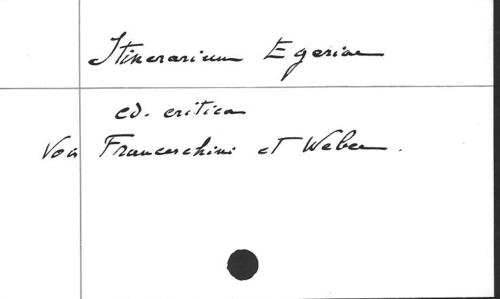 Itinerarium Egeriae
ed. critica
Voir Franceschini et Weber.